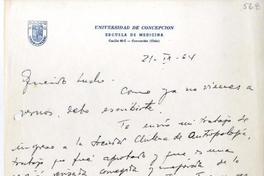 568
UNIVERSIDAD DE CONCEPCION
ESCUELA DE MEDICINA
Concepción (Chile)
21-IX-64
Querido Lucho:
Como ya no vienes a
vernos, debo escribirte.
Te envío mi trabajo de
ingreso a la Sociedad Chilena de Antropología,
trabajo que fué aprobado y que es una